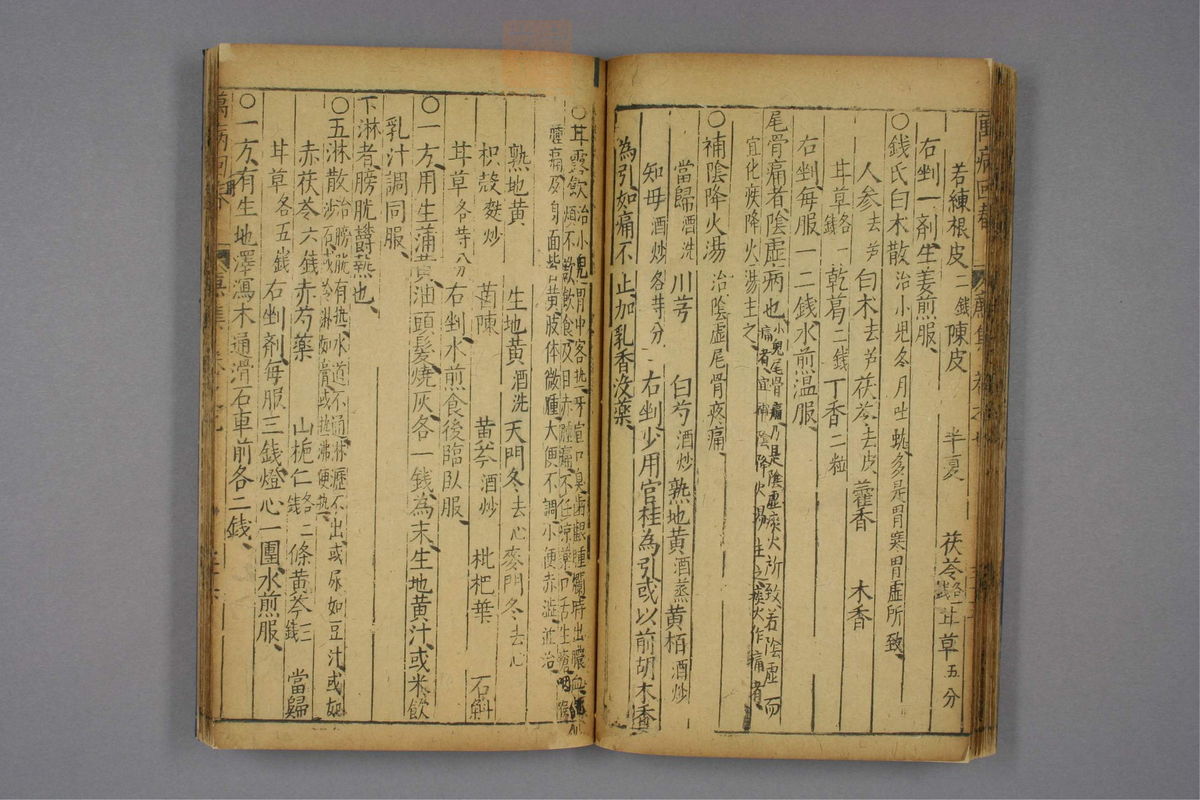 若練根皮二錢 陳皮 半夏 茯苓各一錢 甘草五分
右剉一劑生姜煎服
〇錢氏白术散治小兒冬月吐蚘多是胃寒胃虛所致
人參去芦 白术去芦 茯苓去皮 藿香 木香
甘草各一錢 乾葛二錢 丁香二粒
右剉每服一二錢水煎温服
尾骨痛者陰虛痰火也
小兒尾骨痛乃是陰虛痰火所致若陰虛而
痛者宜補陰降火湯主之痰火作痛者
宜化痰降火湯主之
〇補陰降火湯 治陰虛尾骨疼痛
當歸酒洗 川芎 白芍酒炒 熟地黄酒蒸 黄栢酒炒
知母酒炒各等分 右剉少用官桂為引或以前胡木香
為引如痛不止加乳香沒藥
〇甘露飲
治小兒胃中客热牙宣口臭齒齦腫爛時出膿血
煩不欲飲食及目赤腫痛不任凉藥口舌生瘡咽喉
腫痛及身面皆黄肢体微腫大便不調小便赤澁並治
熟地黄 生地黄酒洗 天門冬去心 麥門冬去心
枳殼麩炒 茵陳 黄芩酒炒 枇杷葉 石斛
甘草各等分 右剉水煎食後臨臥服
〇一方用生蒲黄油頭髮燒灰各一錢為末生地黄汁或米飲
乳汁調同服
下淋者膀胱欝熱也
〇五淋散
治膀胱有热水道不通淋瀝不出或尿如豆汁或如
砂石或冷淋如膏或热沸便热
赤茯苓六錢 赤芍藥 山梔仁各二錢 條黄芩三錢 當歸
甘草各五錢 右剉劑每服三錢燈心一團水煎服
〇一方有生地澤瀉木通滑石車前各二錢